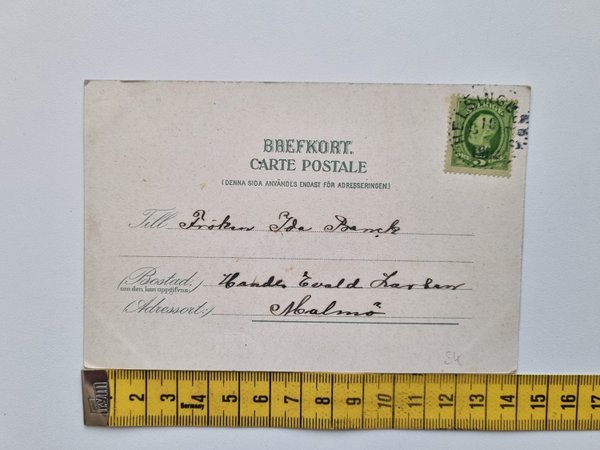 BREFKORT.
CARTE POSTALE
(DENNA SIDA ANVÄNDES ENDAST FÖR ADRESSERINGEN.)
HELSINGB
HMN
10
Till Fröken Ida Banck
(Bostad:) Handl Evald Larsen
om den kan uppgifvas
(Adressort:) Malmö
2 3 4 5 6 7 8 9 10 11 12 13 14 15 16 17
Germany